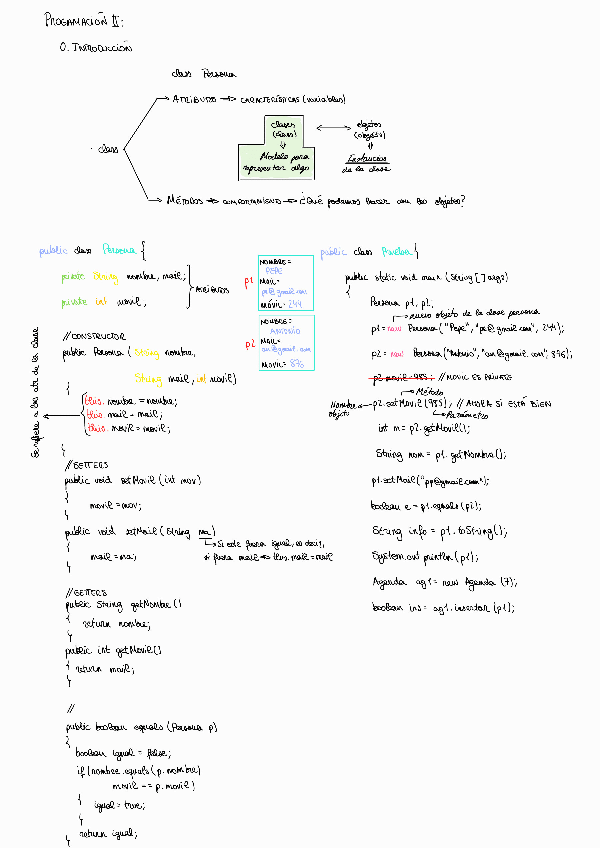 PROGRAMACIÓN II:
0. INTRODUCCIÓN
class Persona
ATRIBUTOS → CARACTERÍSTICAS (variables)
class
clases
(class)
Modelo para
representar algo
objetos
(objects)
Instancias
de la clase
MÉTODOS → COMPORTAMIENTO → ¿Qué podemos hacer con los objetos?
public class Persona {
private String nombre, mail;
private int movil;
ATRIBUTOS
// CONSTRUCTOR
public Persona (String nombre,
String mail, int movil)
{
this. nombre = nombre;
this mail = mail;
this. movil = movil;
}
Se refiere a los atr. de la clase
// SETTERS
public void setMovil (int mov)
{
movil = mov;
}
public void setMail (String ma)
{
mail = ma;
}
Si este fuera igual, es decir,
si fuera mail → this.mail = mail
// GETTERS
public String getNombre ()
{ return nombre;
}
public int getMovil()
{ return movil;
}
//
public boolean equals (Persona p)
{
boolean igual = false;
if (nombre.equals (p.nombre)
movil == p.movil)
{
igual = true;
}
return igual;
}
p1
NOMBRE =
PEPE
MAIL=
pe@gmail.com
MÓVIL= 244
p2
NOMBRE =
ANTONIO
MAIL=
an@gmail.com
MOVIL= 876
public class Prueba {
public static void main (String [] args)
{
Persona p1, p2,
nuevo objeto de la clase persona
p1 = new Persona ("Pepe", "pe@gmail.com", 244);
p2 = new Persona ("Antonio", "an@gmail.com", 876);
p2.movil = 985; // MOVIL ES PRIVATE
Método
Nombre
objeto
p2.setMovil (985); // AHORA SI ESTÁ BIEN
Parámetro
int m = p2.getMovil();
String nom = p1.getNombre();
p1.setMail ("pp@gmail.com");
boolean e = p1.equals (p2);
String info = p1.toString();
System.out.println (p1);
Agenda ag1 = new Agenda (7);
boolean ins = ag1.insertar (p1);